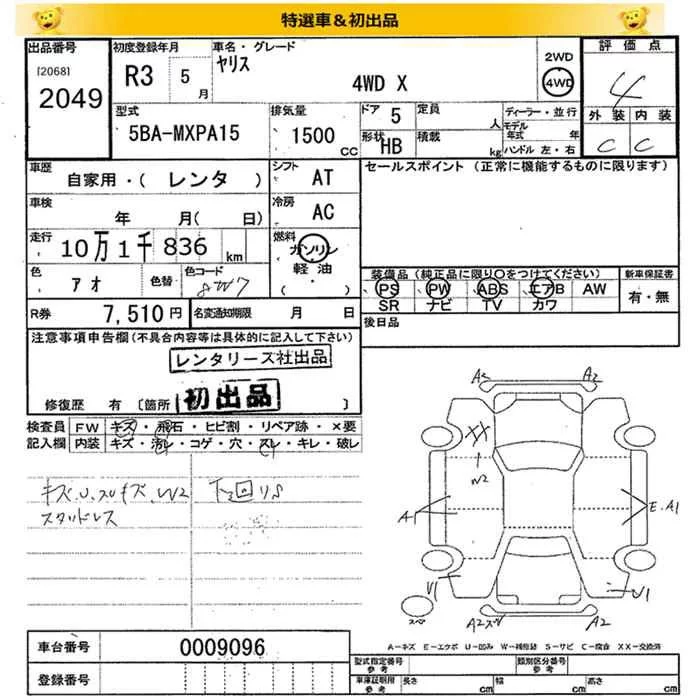 特選車＆初出品
出品番号
[2068]
2049
初度登録年月
R3 5月
車名・グレード
ヤリス
4WD X
2WD
4WD
評価点
4
外装 内装
C C
型式
5BA-MXPA15
排気量
1500 CC
ドア 5
定員 人
形状 HB
積載 kg
ディーラー・並行
モデル年式 年
ハンドル 左・右
車歴
自家用・( レンタ )
シフト
AT
セールスポイント (正常に機能するものに限ります)
車検
年 月( 日)
冷房
AC
走行
10万1千836 km
燃料
ガソリン
軽油
( ・ )
色
アオ
色替
色コード
8W7
装備品 (純正品に限り○をつけてください)
PS PW ABS エアB AW
SR ナビ TV カワ
新車保証書
有・無
R券 7,510円
名変通知期限 月 日
後日品
注意事項申告欄 (不具合内容等は具体的に記入して下さい)
レンタリース社出品
初出品
修復歴 有 [箇所 ]
検査員記入欄
FW キズ・飛石・ヒビ割・リペア跡・×要
内装 キズ・汚レ・コゲ・穴・スレ・キレ・破レ
キズ、U、スリキズ、W2
下回りS
スタッドレス
A2 A2
XX
W2
A1
E.A1
U1
U1
スペア
A2スリ A2
A－キズ E－エクボ U－凹み W－補修跡 S－サビ C－腐食 XX－交換済
車台番号
0009096
登録番号
型式指定番号
参考
類別区分番号
参考
車庫証明用
参考
長さ cm
幅 cm
高さ cm